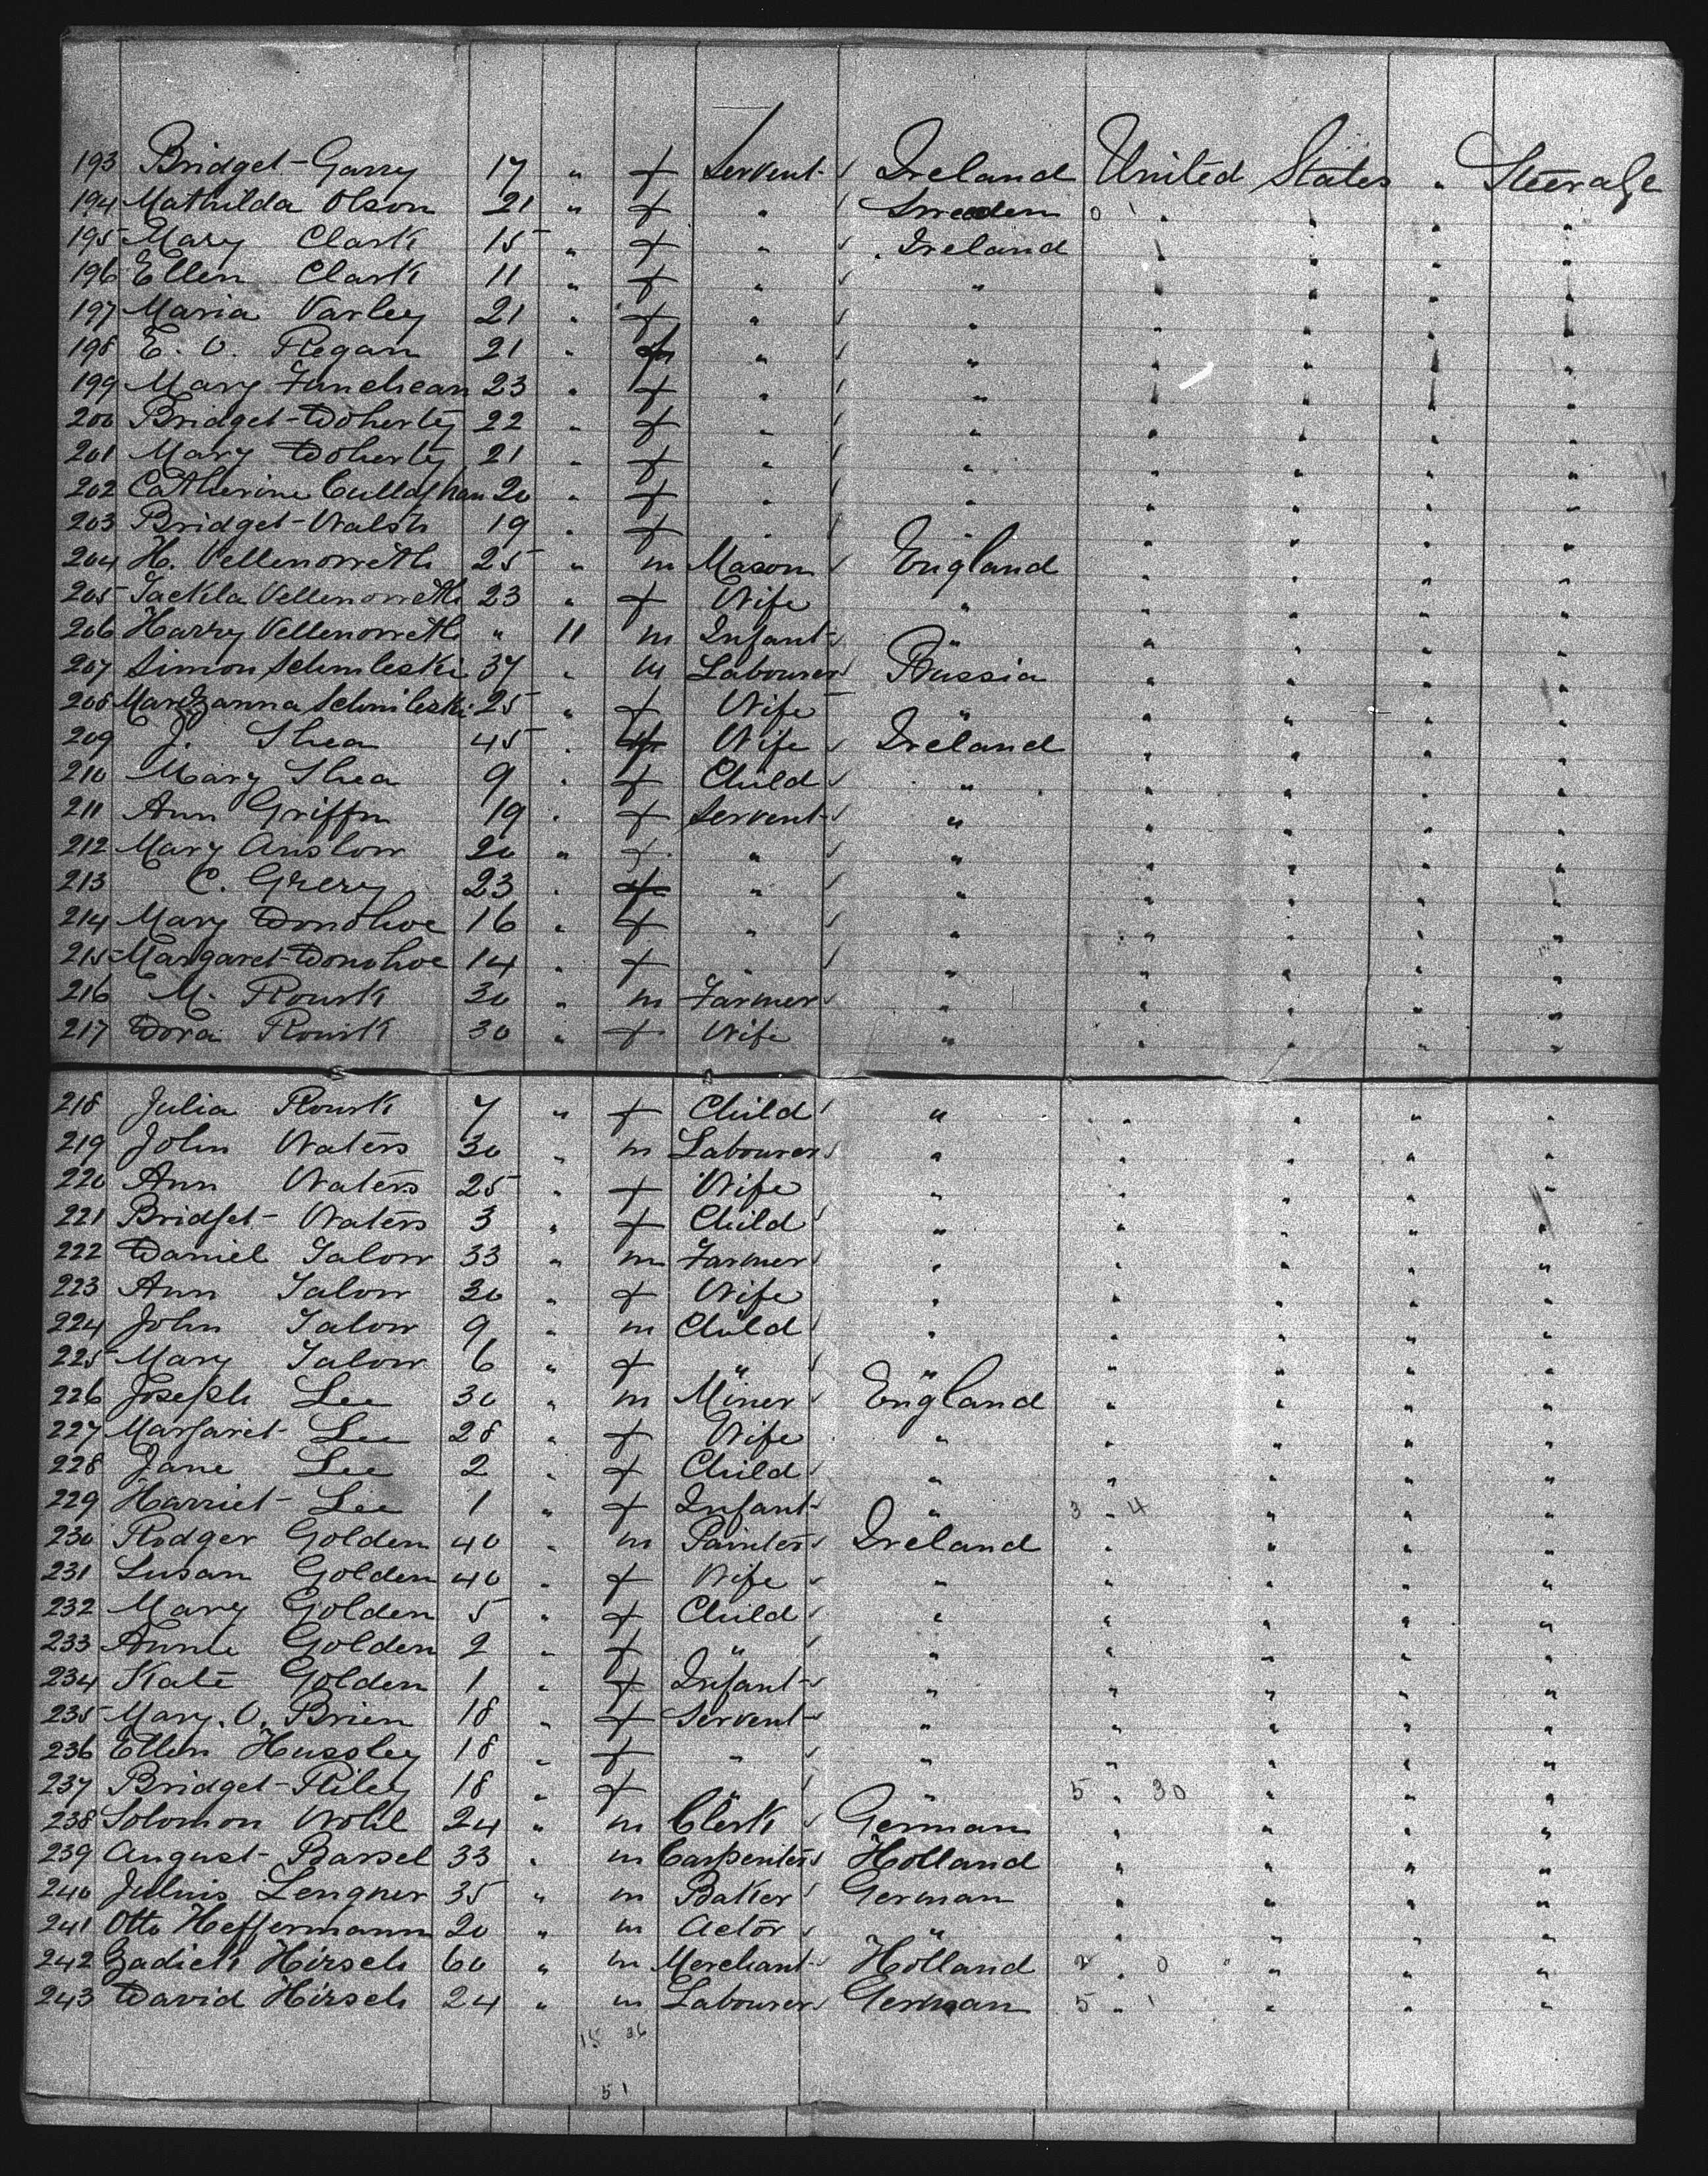 193 Bridget Garry 17 " f Servent Ireland United States " Steerage
194 Mathilda Olson 21 " f " Sweeden 0 1 " " " "
195 Mary Clark 15 " f " Ireland " " " "
196 Ellen Clark 11 " f " " " " " "
197 Maria Varley 21 " f " " " " " "
198 E. O. Regan 21 " f " " " " " "
199 Mary 23 " f " " " " " "
200 Bridget Doherty 22 " f " " " " " "
201 Mary Doherty 21 " f " " " " " "
202 Catherine Cullaghan 20 " f " " " " " "
203 Bridget Walsh 19 " f " " " " " "
204 H. Vellenoweth 25 " m Mason England " " " "
205 Jackla Vellenoweth 23 " f Wife " " " " "
206 Harry Vellenoweth " 11 m Infant " " " " "
207 Simon Schmileski 37 " m Labourer Russia " " " "
208 Schmileski 25 " f Wife " " " " "
209 J. Shea 45 " f Wife Ireland " " " "
210 Mary Shea 9 " f Child " " " " "
211 Ann Griffin 19 " f Servent " " " " "
212 Mary Anslow 20 " f " " " " " "
213 C. Grery 23 " f " " " " " "
214 Mary Donohoe 16 " f " " " " " "
215 Margaret Donohoe 14 " f " " " " " "
216 M. Rourk 30 " m Farmer " " " " "
217 Dora Rourk 30 " f Wife " " " " "
218 Julia Rourk 7 " f Child " " " " "
219 John Waters 30 " m Labourer " " " " "
220 Ann Waters 25 " f Wife " " " " "
221 Bridget Waters 3 " f Child " " " " "
222 Daniel Talow 33 " m Farmer " " " " "
223 Ann Talow 30 " f Wife " " " " "
224 John Talow 9 " m Child " " " " "
225 Mary Talow 6 " f " " " " " "
226 Joseph Lee 30 " m Miner England " " " "
227 Margaret Lee 28 " f Wife " " " " "
228 Jane Lee 2 " f Child " " " " "
229 Harriet Lee 1 " f Infant " 3 4 " " "
230 Rodger Golden 40 " m Painter Ireland " " " "
231 Susan Golden 40 " f Wife " " " " "
232 Mary Golden 5 " f Child " " " " "
233 Annie Golden 2 " f " " " " " "
234 Kate Golden 1 " f Infant " " " " "
235 Mary O. Brien 18 " f Servent " " " " "
236 Ellen Hussley 18 " f " " " " " "
237 Bridget Riley 18 " f " " 5 " 30 " " "
238 Solomon Wohl 24 " m Clerk German " " " "
239 August Barsel 33 " m Carpenter Holland " " " "
240 Julius Lengner 35 " m Baker German " " " "
241 Otto Heffermann 20 " m Actor " " " " "
242 Zadick Hirsch 60 " m Merchant Holland " 0 " " "
243 David Hirsch 24 " m Labourer German 5 " 1 " " "
15 36
51